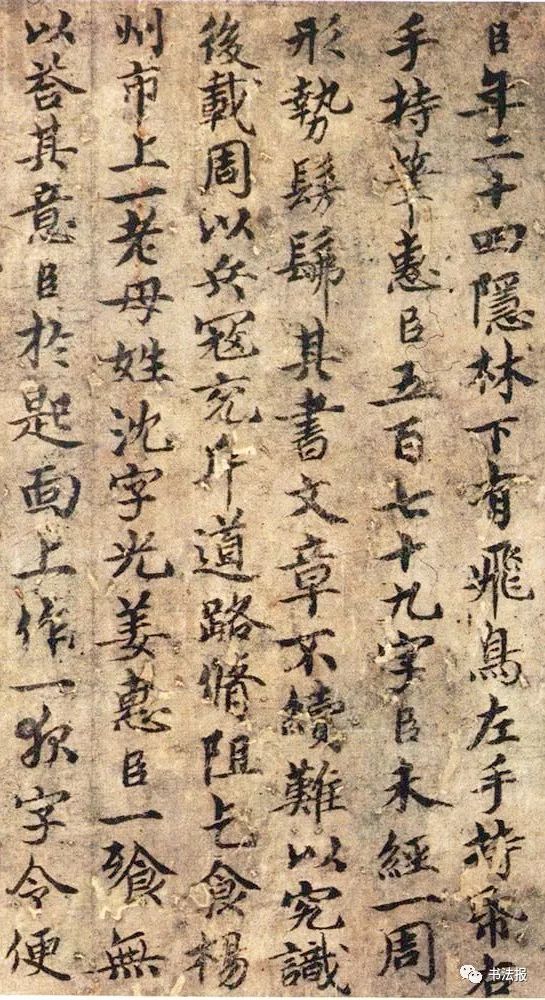 臣年二十四隱林下有飛鳥左手持帋右
手持筆惠臣五百七十九字臣未經一周
形勢髣髴其書文章不續難以究識
後載周以兵寇充斥道路脩阻乞食楊
州市上一老母姓沈字光姜惠臣一飡無
以荅其意臣於匙面上作一夜字令便
书法报